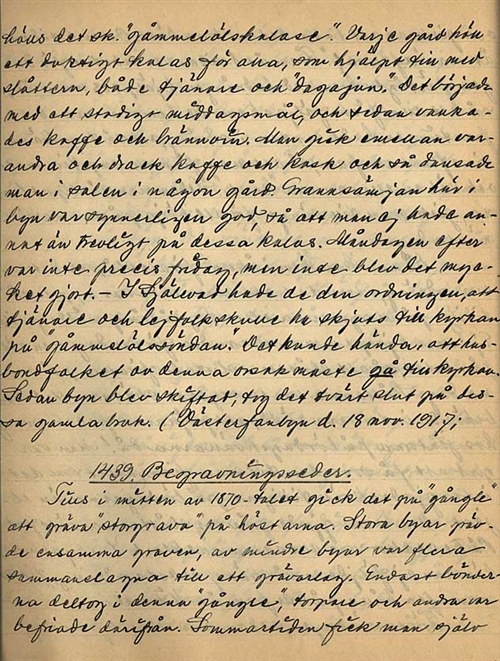 hölls det sk. "gåmmelölskalase". Varje gård höll
ett duktigt kalas för alla, som hjälpt till med
slåttern, både tjänare och "dagajon." Det började
med ett stadigt middagsmål, och sedan vanka-
des kaffe och brännvin. Man gick emellan var-
andra och drack kaffe och kask och så dansade
man i salen i någon gård. Grannsämjan här i
byn var synnerligen god, så att man ej hade an-
nat än trevligt på dessa kalas. Måndagen efter
var inte precis fridag, men inte blev det myc-
ket gjort. – I Själevad hade de den ordningen, att
tjänare och lejfolk skulle ha skjuts till kyrkan
på "gåmmelölssöndan." Det kunde hända, att hus-
bondfolket av denna orsak måste gå till kyrkan.
Sedan byn blev skiftad, tog det tvärt slut på des-
sa gamla bruk. (Västerfanbyn d. 18 nov. 1917;
1439. Begravningsseder.
Tills i mitten av 1870-talet gick det på "gångle"
att gräva "storgrava" på höstarna. Stora byar gräv-
de ensamma graven, av mindre byar var flera
sammanslagna till ett grävarlag. Endast bönder-
na deltog i denna "gångle", torpare och andra var
befriade därifrån. Sommartiden fick man själv